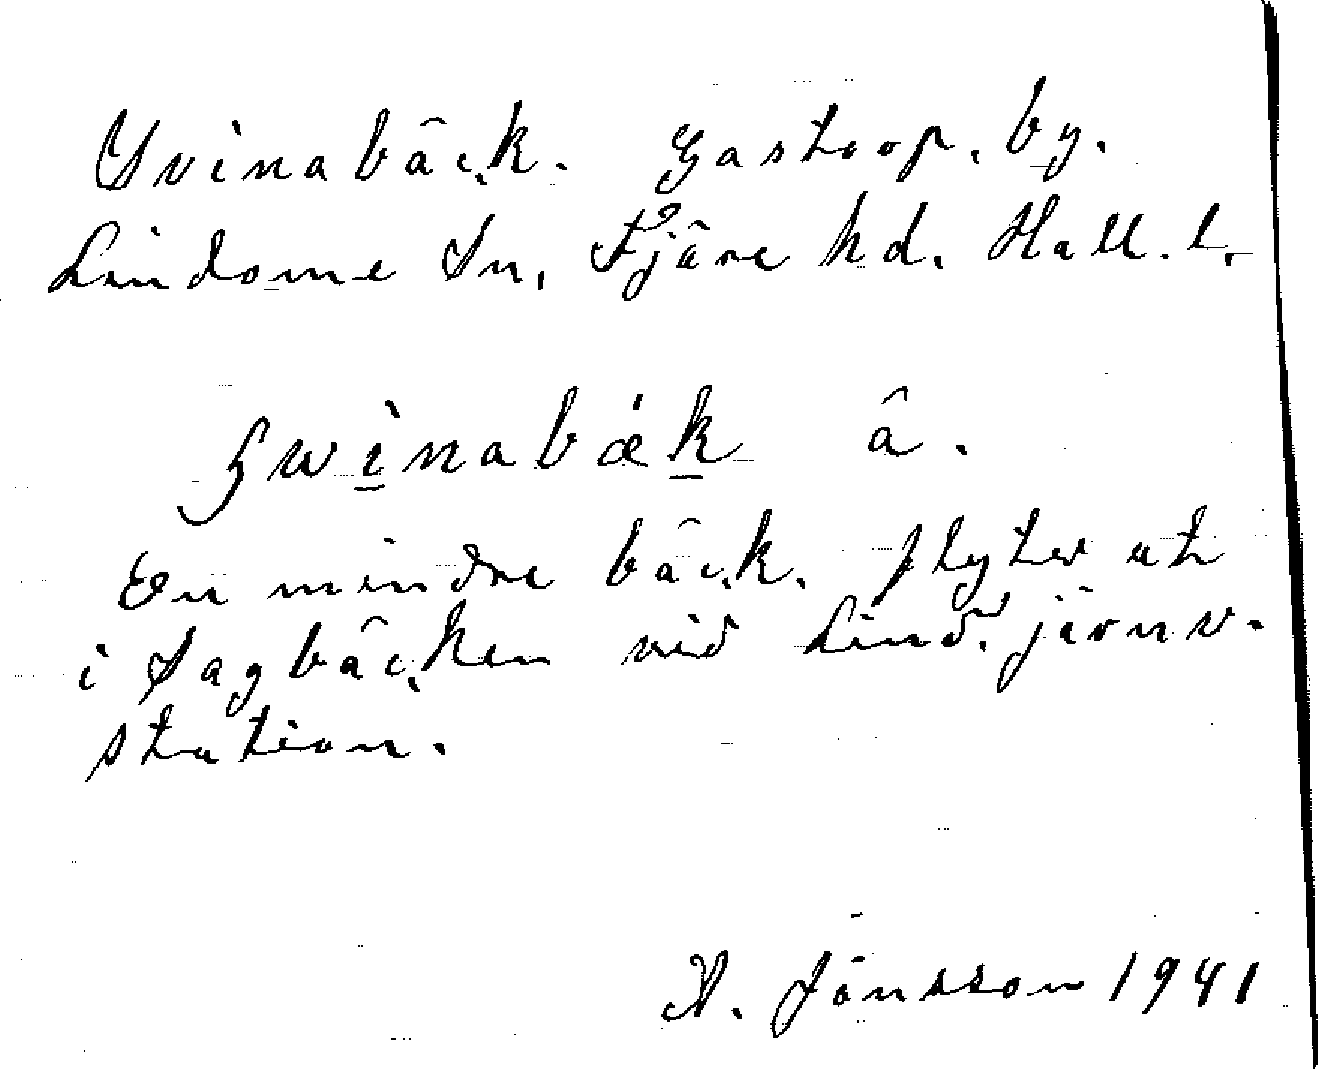 Svinabäck. Gastorp. by.
Lindome Sn, Fjäre hd. Hall. l.
swìnabæ̀k â.
En mindre bäck. flyter ut
i Sagbäcken vid Lind. järnv.
station.
A. Jönsson 1941